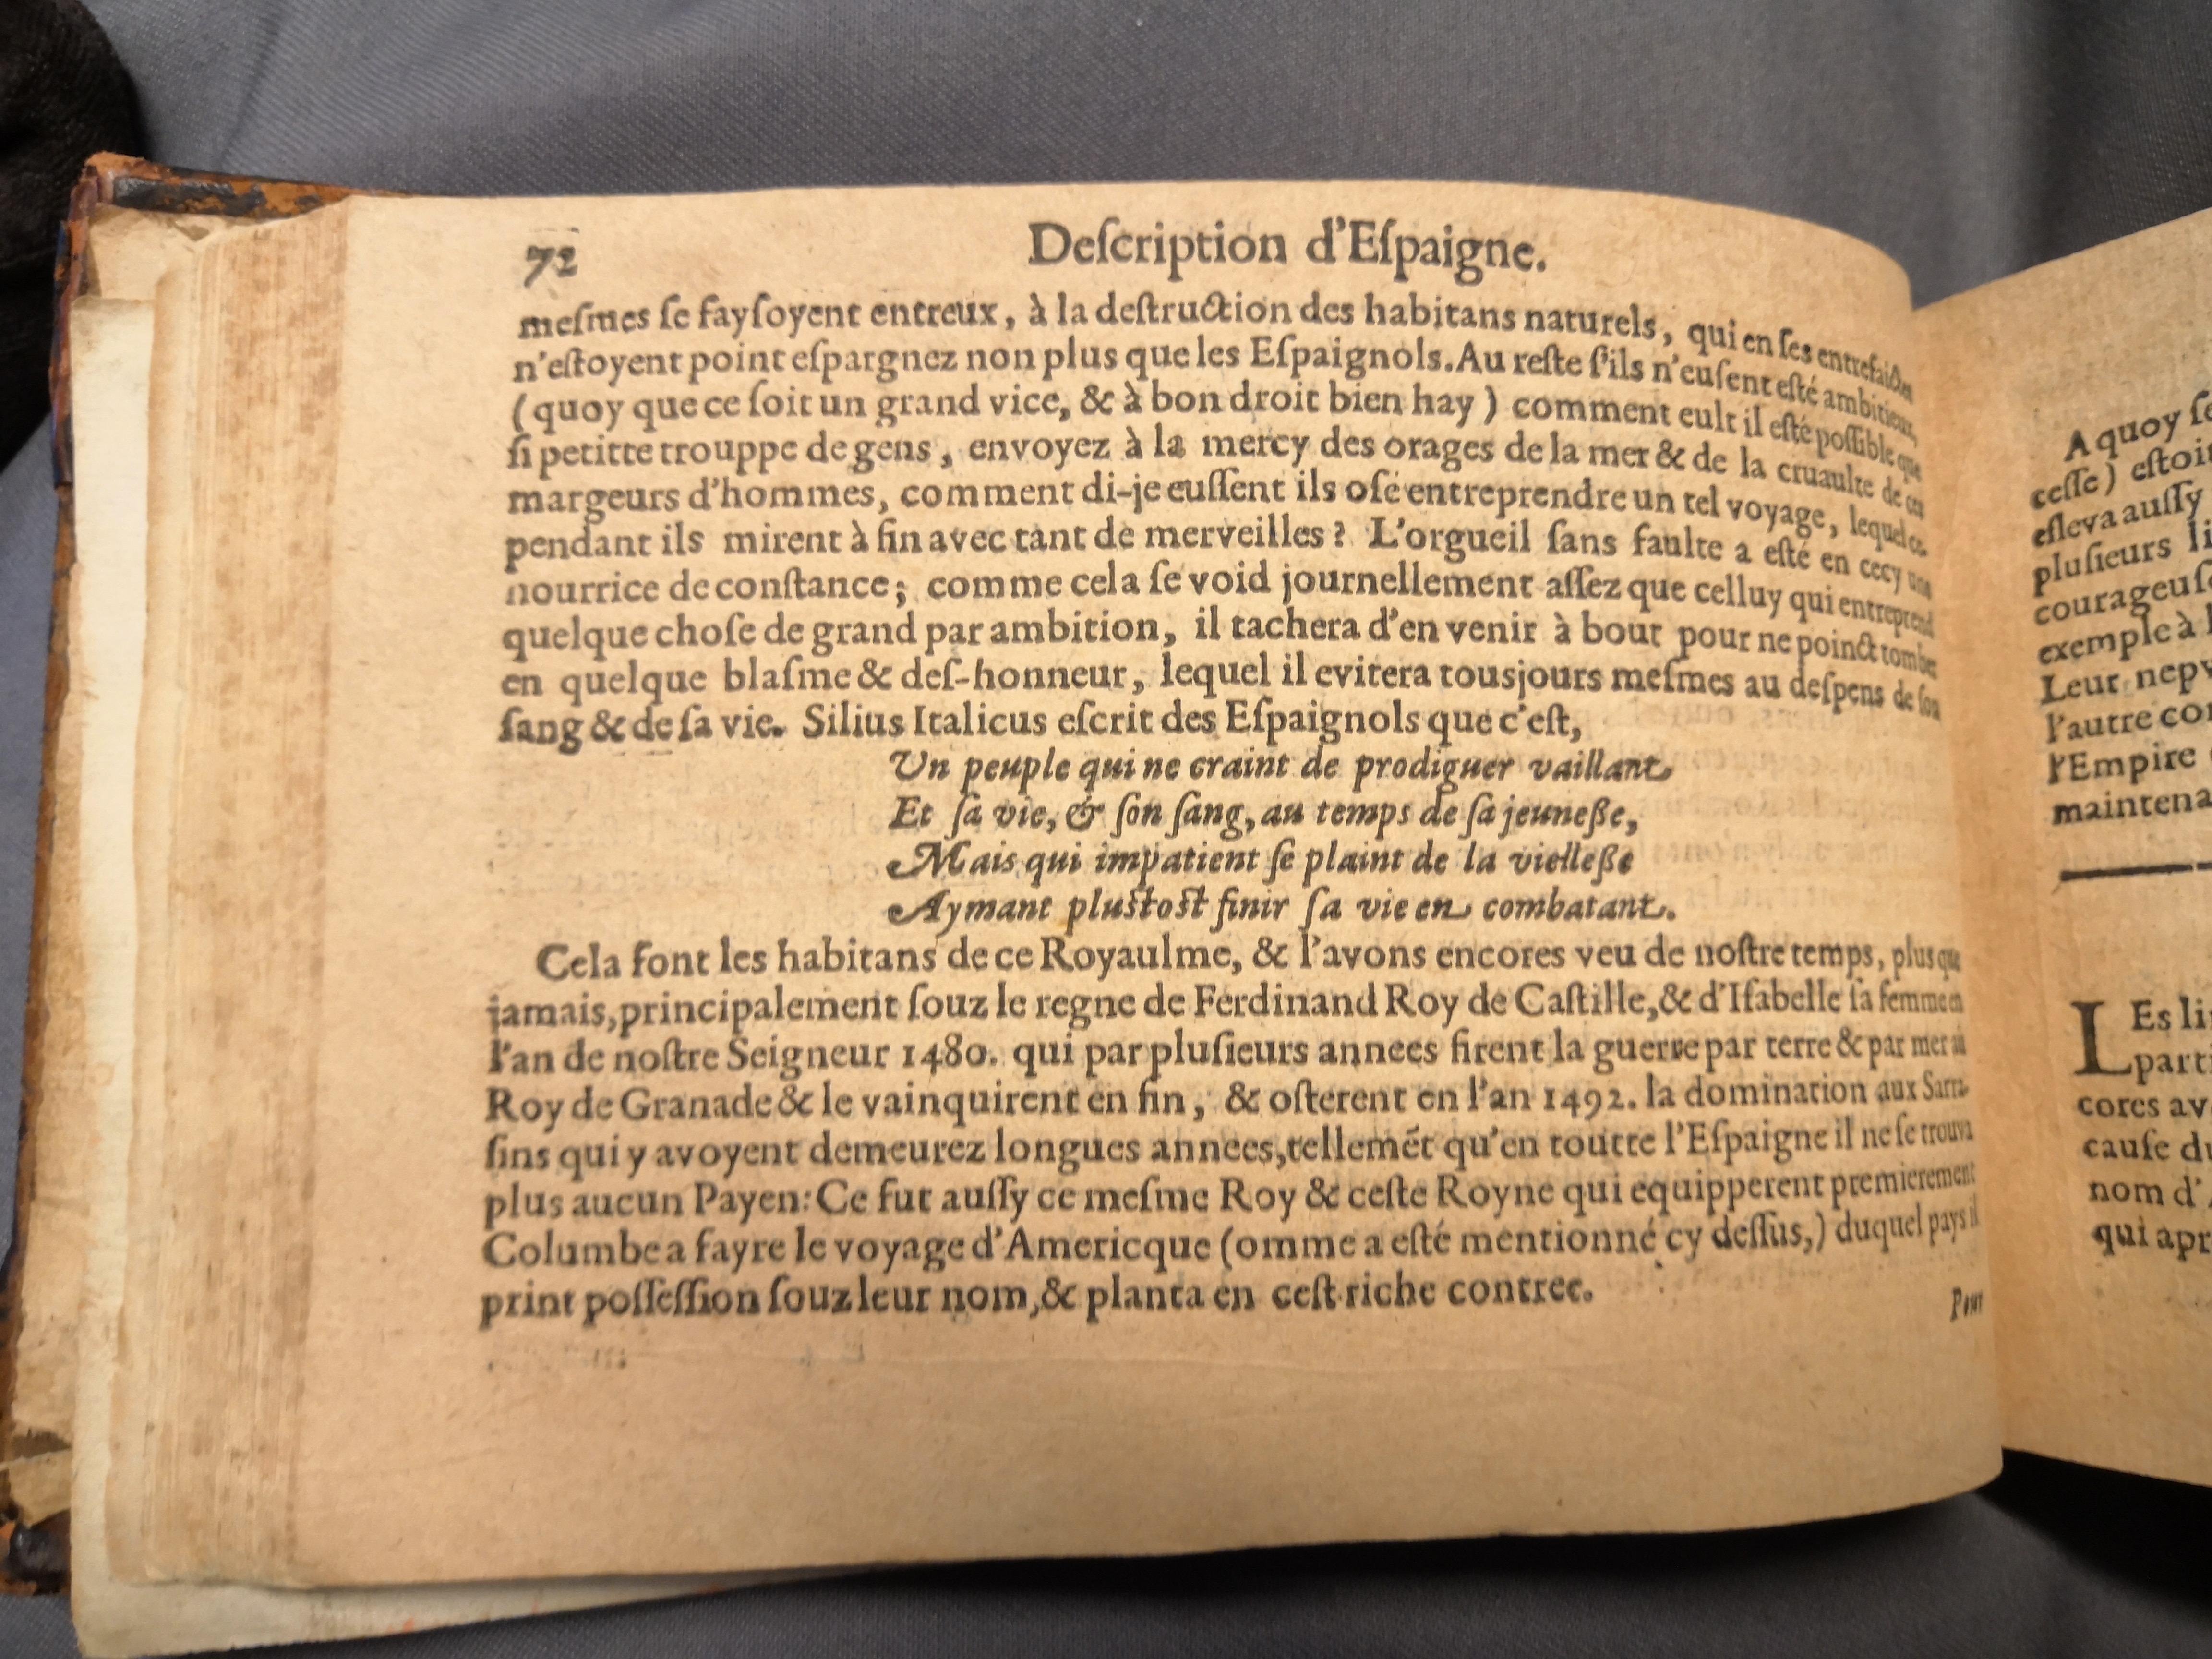 72 Deſcription d'Eſpaigne.
meſmes ſe fayſoyent entreux, à la deſtruction des habitans naturels, qui en ſes entrefaictes
n'eſtoyent point eſpargnez non plus que les Eſpaignols. Au reſte ſ'ils n'euſent eſté ambitieux,
(quoy que ce ſoit un grand vice, & à bon droit bien hay) comment eult il eſté poſſible que
ſi petitte trouppe de gens, envoyez à la mercy des orages de la mer & de la cruaulte de ces
margeurs d'hommes, comment di-je euſſent ils oſé entreprendre un tel voyage, lequel ce-
pendant ils mirent à fin avec tant de merveilles? L'orgueil ſans faulte a eſté en cecy une
nourrice de conſtance; comme cela ſe void journellement aſſez que celluy qui entreprend
quelque choſe de grand par ambition, il tachera d'en venir à bout pour ne poinct tomber
en quelque blaſme & deſ-honneur, lequel il evitera tousjours meſmes au deſpens de ſon
ſang & de ſa vie. Silius Italicus eſcrit des Eſpaignols que c'eſt,
Un peuple qui ne craint de prodiguer vaillant
Et ſa vie, & ſon ſang, au temps de ſa jeuneße,
Mais qui impatient ſe plaint de la vielleße
Aymant pluſtoſt finir ſa vie en combatant.
Cela font les habitans de ce Royaulme, & l'avons encores veu de noſtre temps, plus que
jamais, principalement ſouz le regne de Ferdinand Roy de Caſtille, & d'Iſabelle ſa femme en
l'an de noſtre Seigneur 1480. qui par pluſieurs annees firent la guerre par terre & par mer au
Roy de Granade & le vainquirent en fin, & oſterent en l'an 1492. la domination aux Sarra-
ſins qui y avoyent demeurez longues annees, tellemēt qu'en toutte l'Eſpaigne il ne ſe trouva
plus aucun Payen: Ce fut auſſy ce meſme Roy & ceſte Royne qui equipperent premierement
Columbe a fayre le voyage d'Americque (omme a eſté mentionné cy deſſus,) duquel pays il
print poſſeſſion ſouz leur nom, & planta en ceſt riche contree.
Pour
A quoy
ceſſe) eſtoit
eſleva auſſy
pluſieurs
exemple à
Leur
l'autre
l'Empire
LEs
cauſe
nom d'
qui